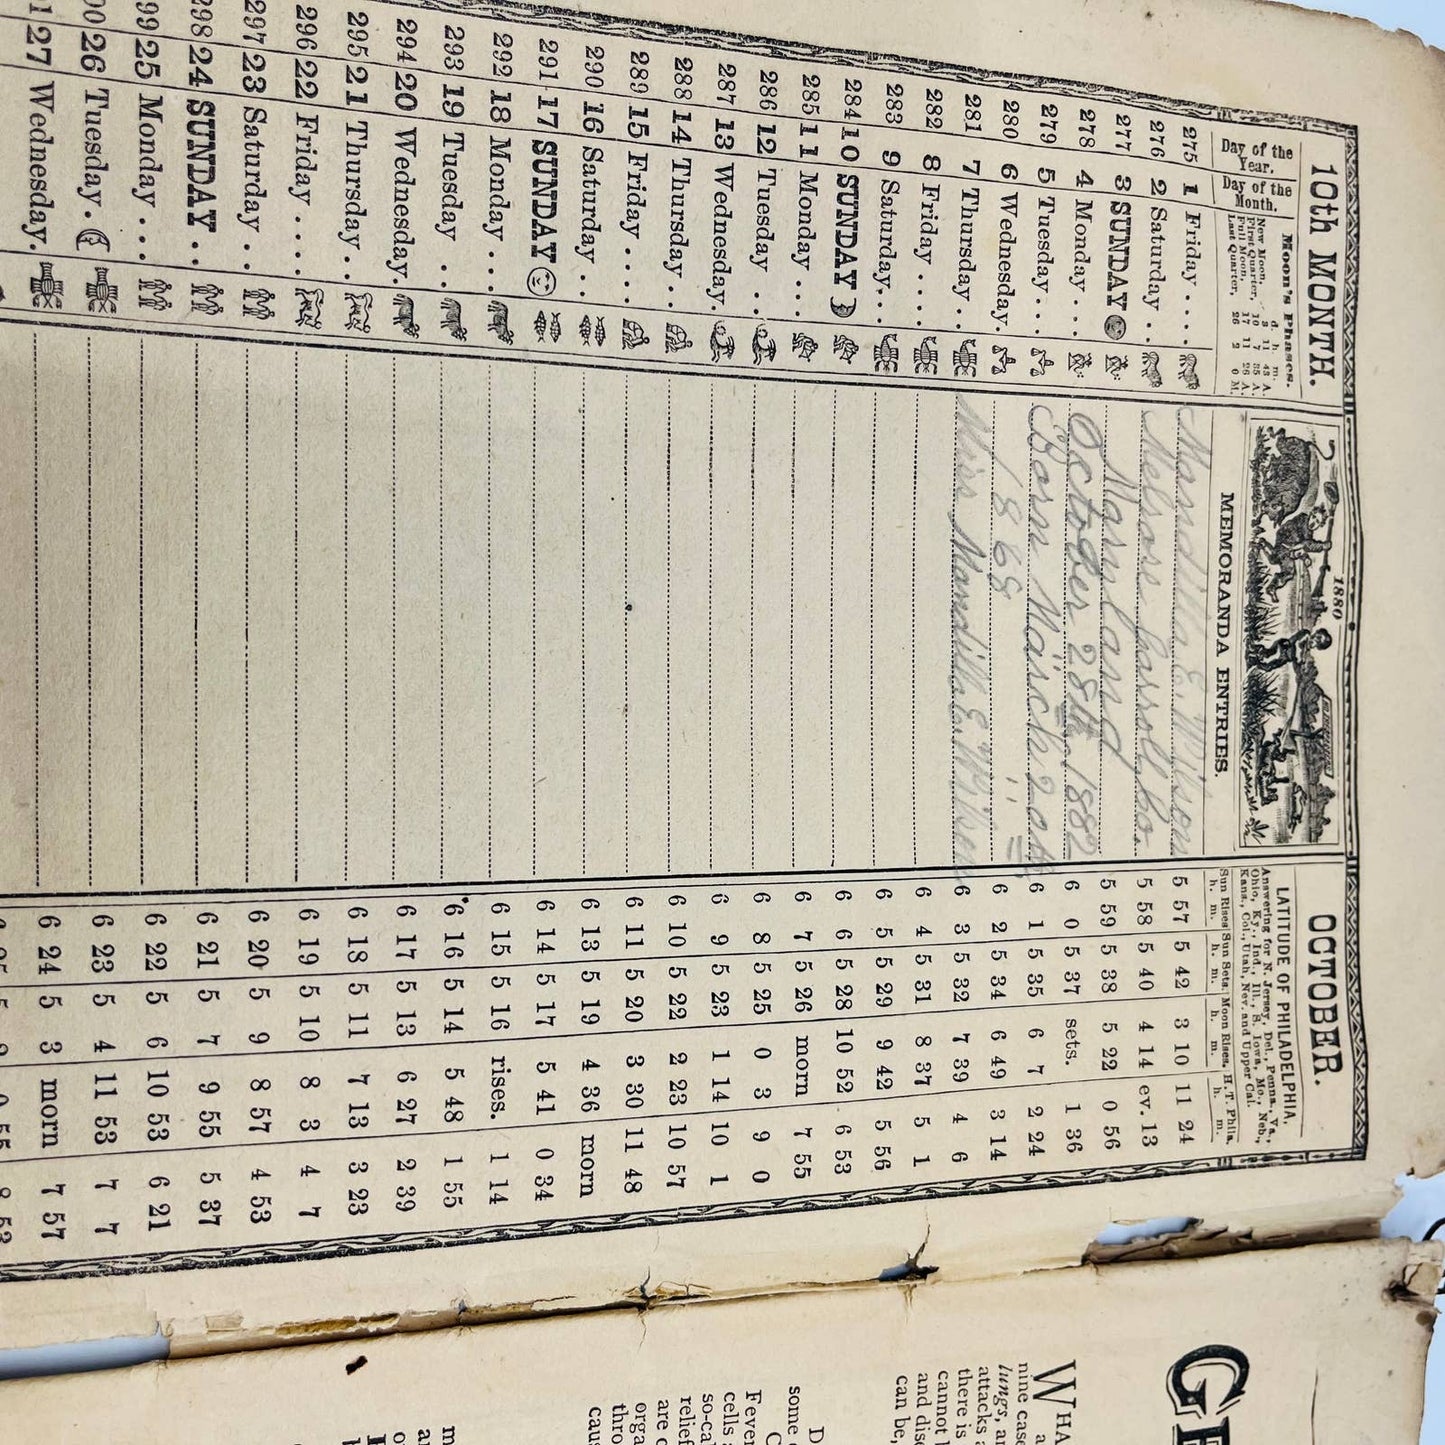 10th MONTH.
1880
OCTOBER.
Day of the Year.
Day of the Month.
Moon's Phases.
d. h. m.
New Moon, 3 11 43 A.
First Quarter, 10 7 35 A.
Full Moon, 17 11 26 A.
Last Quarter, 26 2 0 M.
MEMORANDA ENTRIES.
LATITUDE OF PHILADELPHIA,
Answering for N. Jersey, Del., Penna., Va.,
Ohio, Ky., Ind., Ill., S. Iowa, Mo., Neb.,
Kans., Col., Utah, Nev. and Upper Cal.
Sun Rises Sun Sets. Moon Rises. H. T. Phila.
h. m. h. m. h. m. h. m.
275 1 Friday . . . . Mandilla E. Wilson 5 57 5 42 3 10 11 24
276 2 Saturday . . Melrose Carroll, Co. 5 58 5 40 4 14 ev. 13
277 3 SUNDAY Maryland 5 59 5 38 5 22 0 56
278 4 Monday . . . October 28th, 1882 6 0 5 37 sets. 1 36
279 5 Tuesday . . . Born March 20th 6 1 5 35 6 7 2 24
280 6 Wednesday. 1868 6 2 5 34 6 49 3 14
281 7 Thursday . . Miss Mandilla E. Wilson 6 3 5 32 7 39 4 6
282 8 Friday . . . . 6 4 5 31 8 37 5 1
283 9 Saturday . . 6 5 5 29 9 42 5 56
284 10 SUNDAY 6 6 5 28 10 52 6 53
285 11 Monday . . . 6 7 5 26 morn 7 55
286 12 Tuesday . . 6 8 5 25 0 3 9 0
287 13 Wednesday. 6 9 5 23 1 14 10 1
288 14 Thursday . . 6 10 5 22 2 23 10 57
289 15 Friday . . . . 6 11 5 20 3 30 11 48
290 16 Saturday . . 6 13 5 19 4 36 morn
291 17 SUNDAY 6 14 5 17 5 41 0 34
292 18 Monday . . . 6 15 5 16 rises. 1 14
293 19 Tuesday . . 6 16 5 14 5 48 1 55
294 20 Wednesday. 6 17 5 13 6 27 2 39
295 21 Thursday . . 6 18 5 11 7 13 3 23
296 22 Friday . . . . 6 19 5 10 8 3 4 7
297 23 Saturday . . 6 20 5 9 8 57 4 53
298 24 SUNDAY . . 6 21 5 7 9 55 5 37
99 25 Monday . . . 6 22 5 6 10 53 6 21
00 26 Tuesday . 6 23 5 4 11 53 7 7
27 Wednesday. 6 24 5 3 morn 7 57
GE
WHA
nine case
lungs, an
attacks a
there is
cannot b
and dise
can be,
some
Fever
cells
so-cal
relief
are c
orga
thro
caus